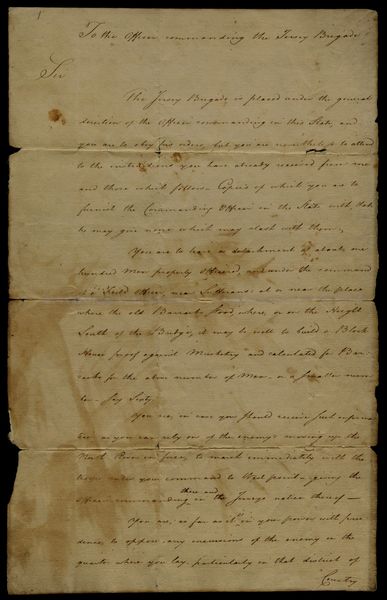 1
To the Officer commanding the Jersey Brigade
Sir
The Jersey Brigade is placed under the general
direction of the Officer commanding in this State and
you are to obey his orders, but you are nevertheless to attend
to the instructions you have already received from me
and those which follow. Copies of which you are to
furnish the Commanding Officer in the State with that
he may give none which may clash with them,
You are to leave a detachment of about one
hundred Men properly Officered, and under the command
of a Field Officer, near Sufferans at or near the place
where the old Barrack stood, where, or on the Height
South of the Bridge, it may be well to build a Block
House proof against Musketry and calculated for Bar-
racks for the above number of Men or a smaller num-
ber say Sixty.
You are, in case you should receive such informa-
tion as you can rely on of the enemy's moving up the
North River in force, to march immediately with the
troops under your command to West point — giving the
officer commanding in the Jerseys notice thereof —
there and
You are, as far as it in your power with pru-
dence, to oppose any incursions of the enemy in the
quarter where you lay, particularly in that district of
Country